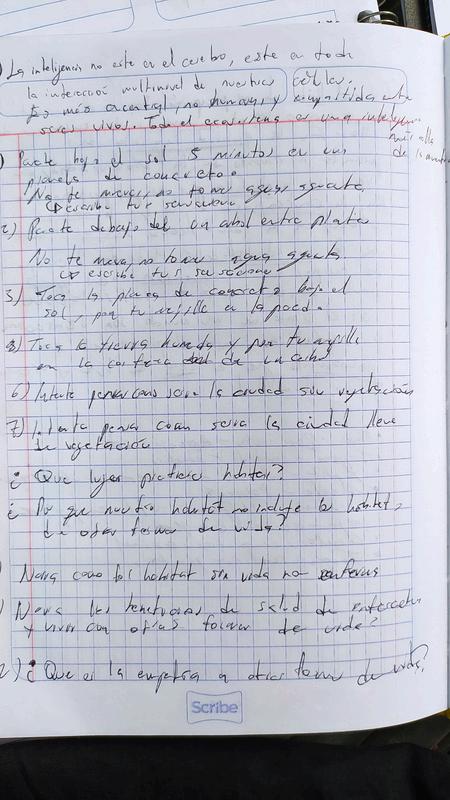 ) La inteligencia no este en el cerebro, este en toda
la interacción multinivel de nuestras célls.
Es más acentral, no humana, y compartida ente
seres vivos. Todo el ecosistema es una inteligen
más alla
de la
) Parte bajo el sol 5 minutos en un
planela de concreto.
No te mevas, no tome agua, aguata
escribe tus sensacione
2) Parte debajo del un arbol entre planta
No te meva, no tomar agua aguata
escribe tus sensacione
3) Toca la planca de concreto bajo el
sol, pon tu mejilla en la pared.
4) Toca la tierra humeda y pon tu mejilla
en la corteza de un arbol
6) Intenta pensar como seria la ciudad sin vegetación
7) Intenta pensar coam seria la ciudad llena
de vegetación
¿ Que lugar prefieres habitar?
¿ Por que nuestro habitat no incluye los habitats
de otras formas de vida?
) Narra como los habitat sin vida nos enferman
) Narra los beneficios de salud de
y vivir con otras formas de vida?
2) ¿ Que es la empatia a otras forma de vida?
Scribe